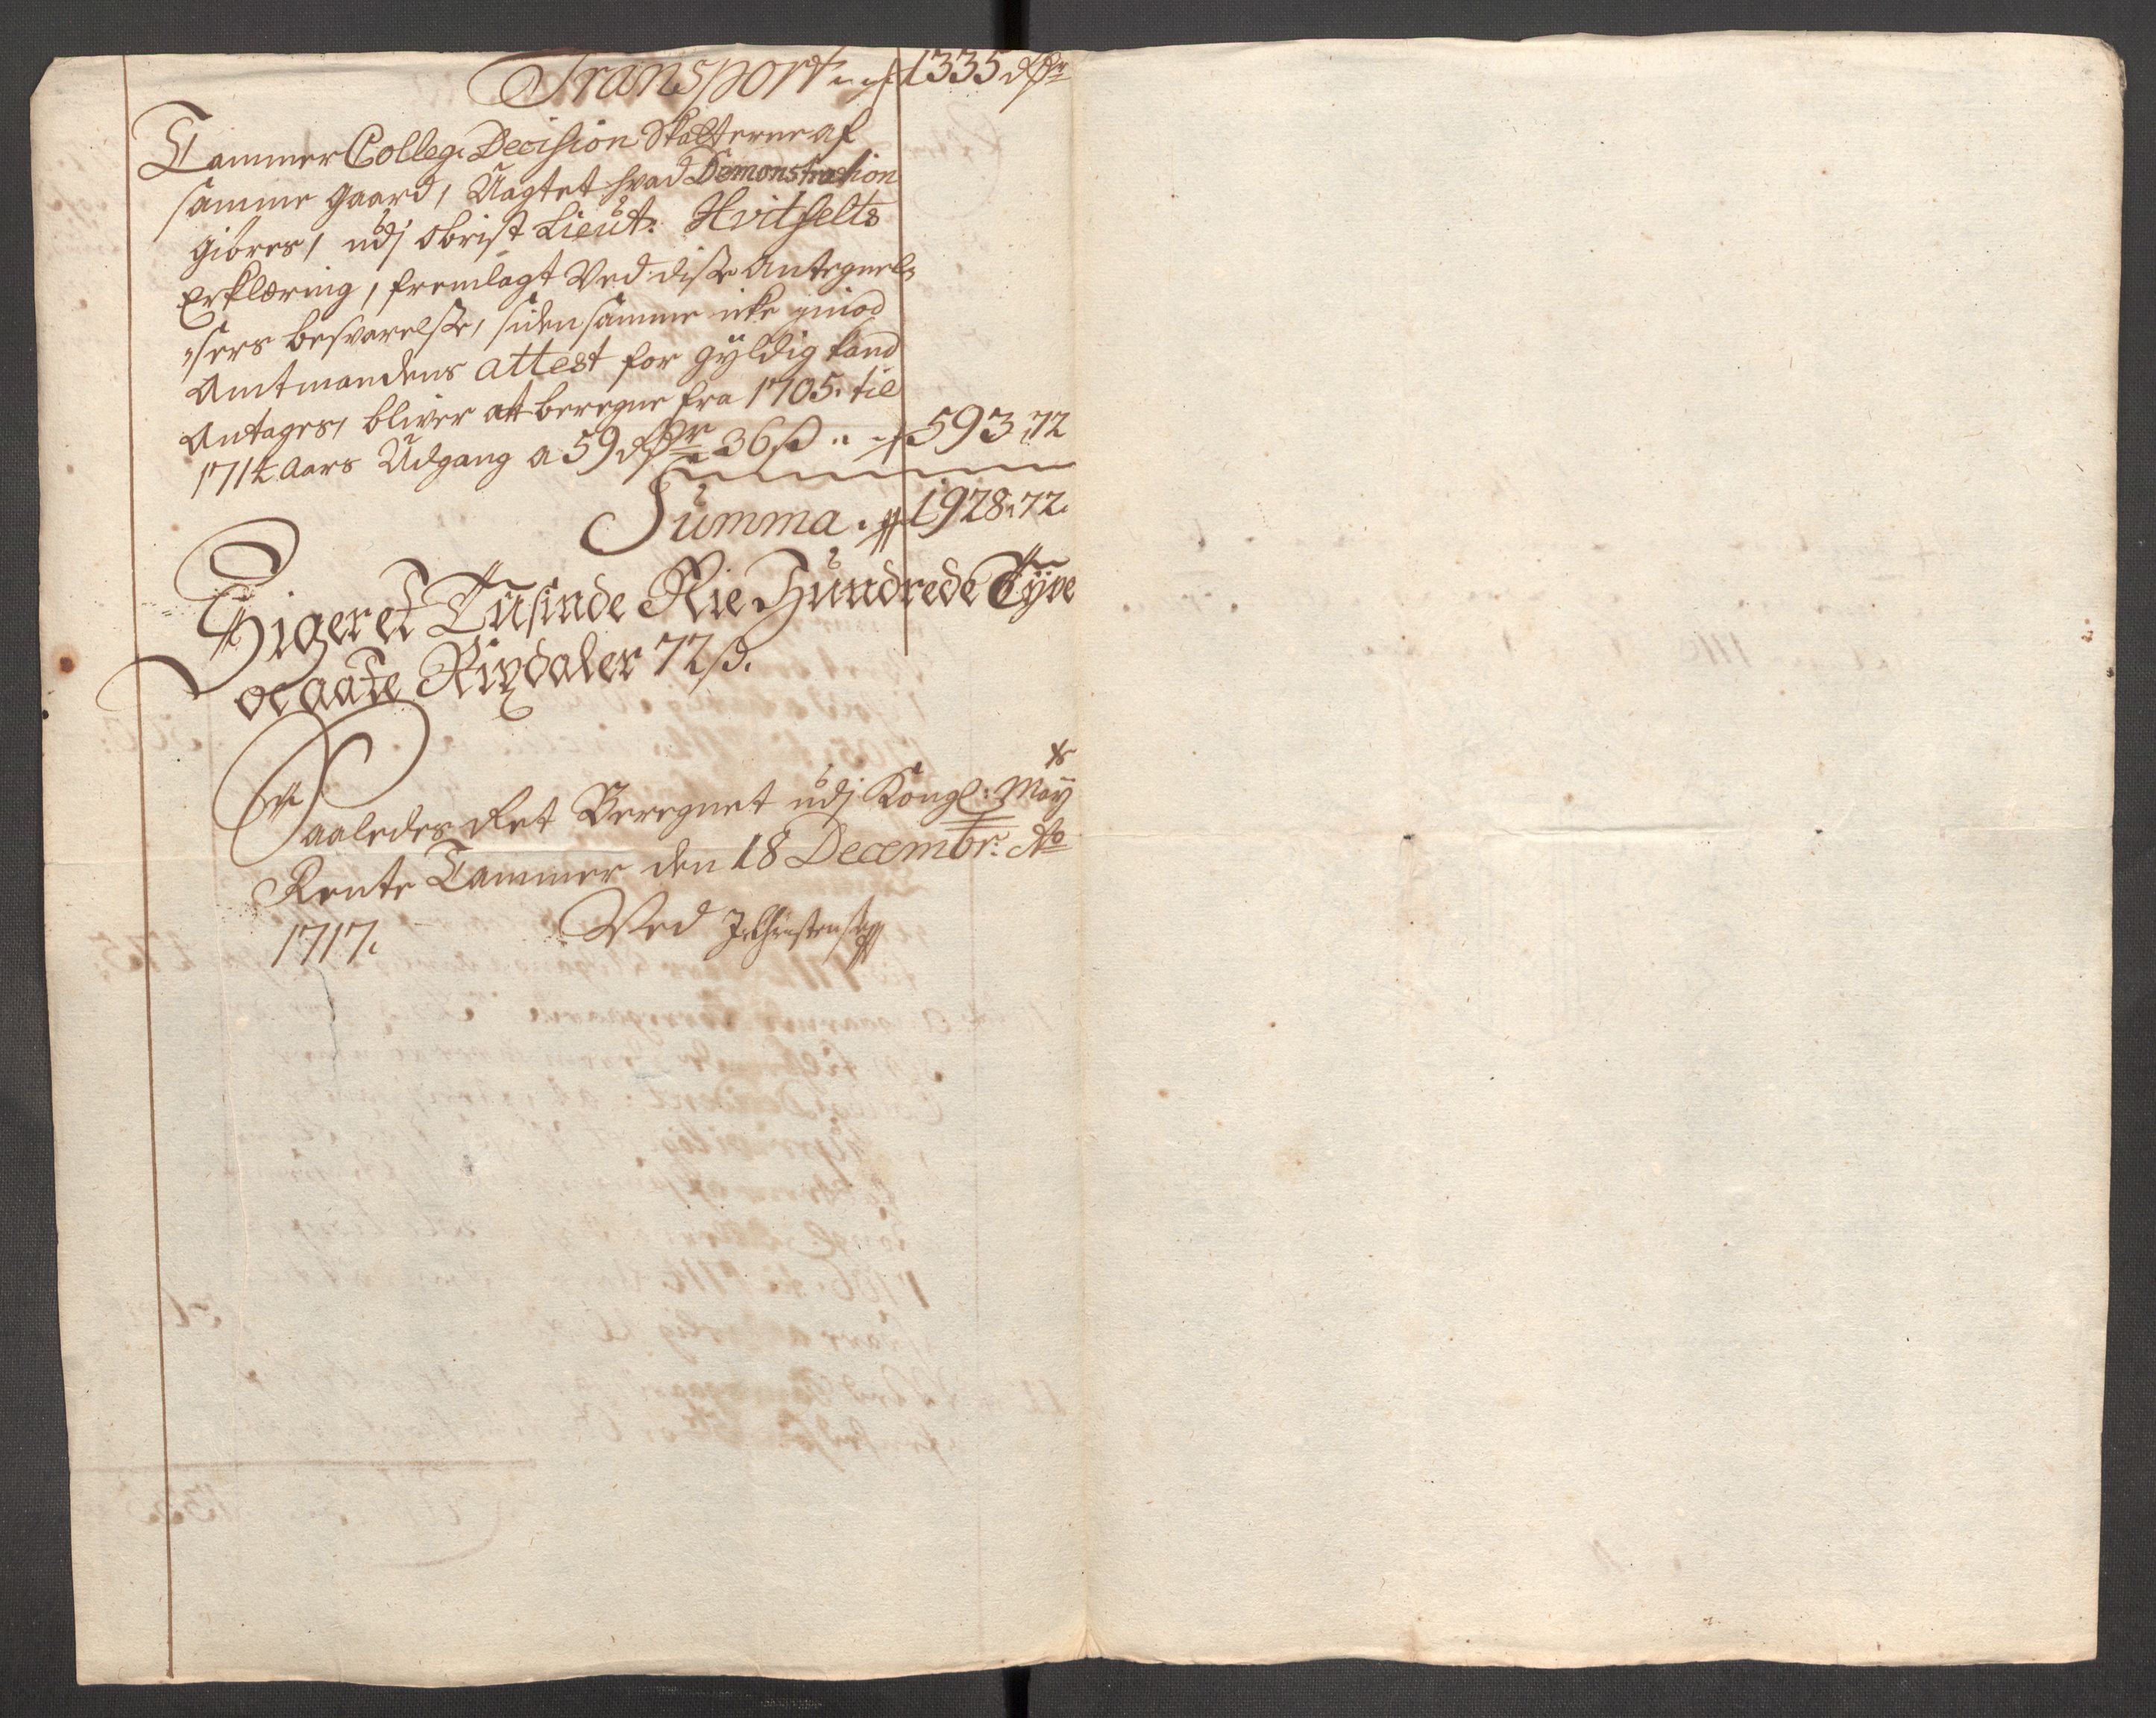 Transport .. 1335 rdr
Cammer Colleg: Decision Skatterne af
samme gaard, Uagtet hvad Demonstration
giöres, udj Obrist Lieut: Hvitfelts
Erklæring, fremlagt Ved disse Antegnel-
sers besvarelse, siden samme icke imod
Amtmandens attest for gyldig kand
Antages, bliver at beregne fra 1705. til
1714 Aars Udgang a 59 rdr 36 ß .. 593.72
Summa . 1928.72.
Siger et Tusinde Nie Hundrede Tyve
oc aate Rixdaler 72 ß.
Saaledes Ret Beregnet udj Kongl: May ts
Rente Cammer den 18 Decembr: Ao
1717. Ved J. Christensen